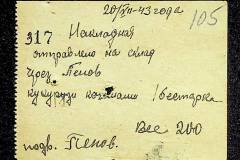 20/XII-43 года
105
317 Накладная
отправлено на склад
чрез Пепов
кукурузи качанами 1 бестарка
Вес 200
подв. Пепов.